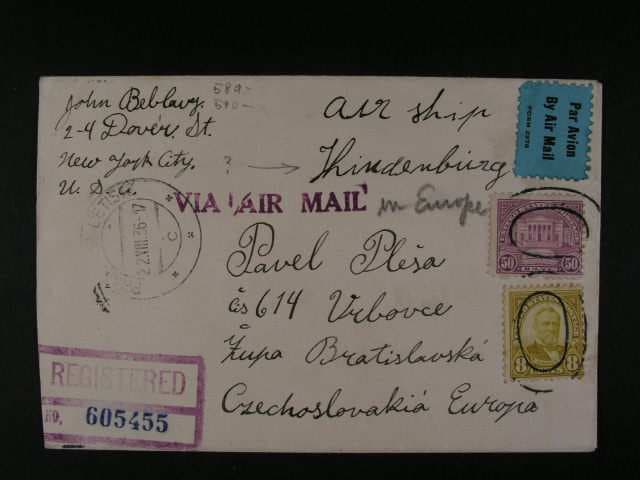 John Beblavy.
2-4 Dover. St.
New York City.
U. S. A.
589-
590-
air ship
? → Hindenburg
Par Avion
By Air Mail
VIA AIR MAIL
in Europe
22.VIII.36-17
C
50 50
8 8
Pavel Pleša
čs 614 Vrbovce
Župa Bratislavská
Czechoslovakiá Europa
REGISTERED
NO. 605455